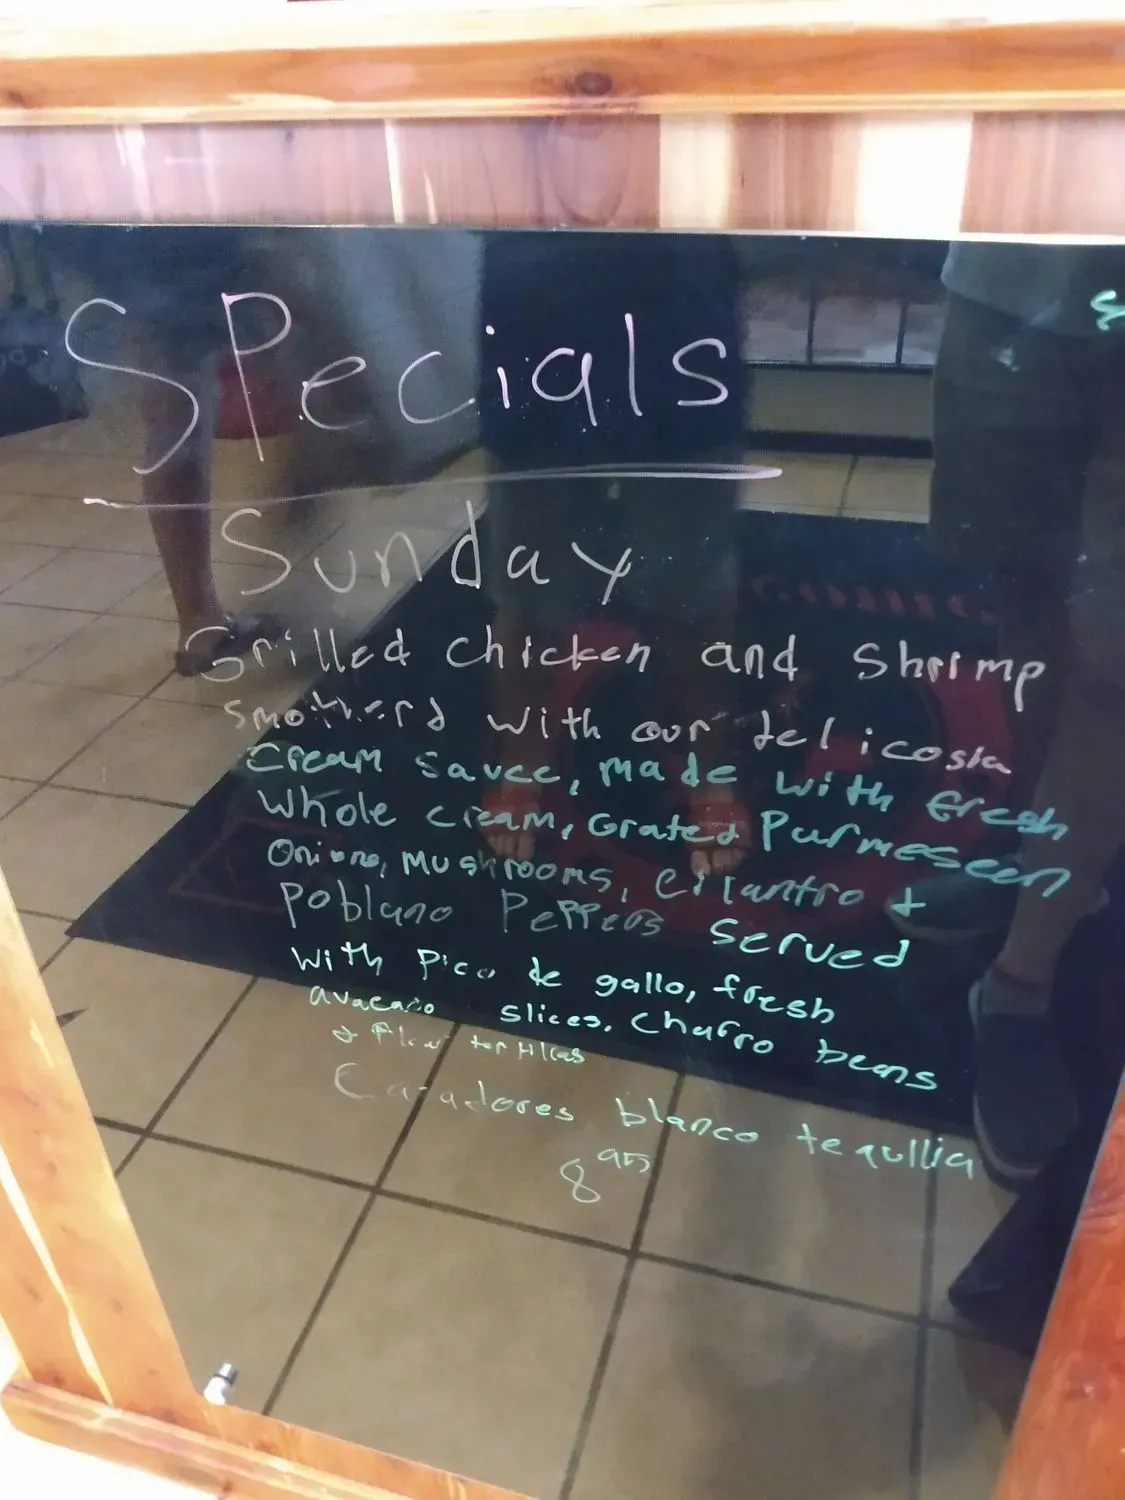 Specials
Sunday
Grilled chicken and Shrimp
smotherd with our delicosia
Cream sauce, made with fresh
Whole cream, Grated Purmeseen
Onions, Mushrooms, cilantro &
Poblano Peppers served
With Pico de gallo, fresh
avacado slices. Charro beans
& flour tortillas
Cazadores blanco tequllia
8 95